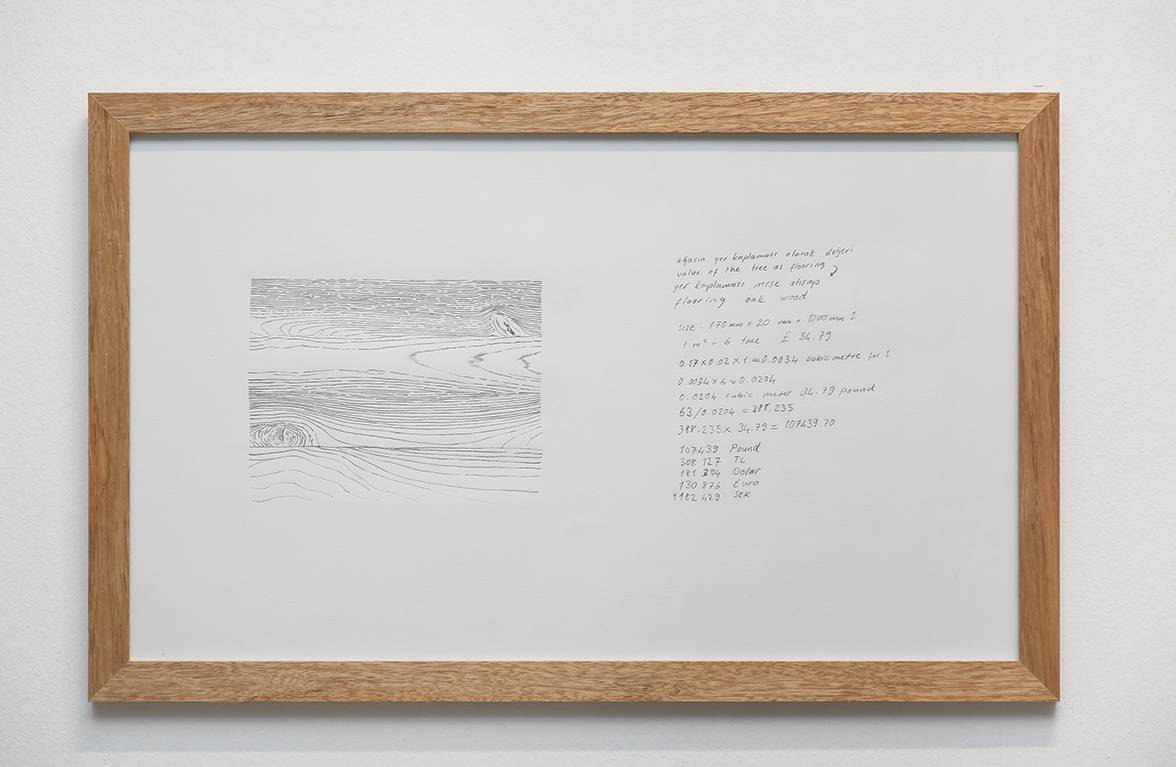 ağacın yer kaplaması olarak değeri
value of the tree as flooring
yer kaplaması meşe ahşap
flooring oak wood
size . 170 mm x 20 mm x 1000 mm 1
1 m² = 6 tane £ 34.79
0.17 x 0.02 x 1 = 0.0034 cubic metre for 1
0.0034 x 6 = 0.0204
0.0204 cubic meter 34.79 pound
63/0.0204 = 388.235
388.235 x 34.79 = 107439.70
107439 Pound
308 127 TL
Dolar
130 876 Euro
1182 429 SEK